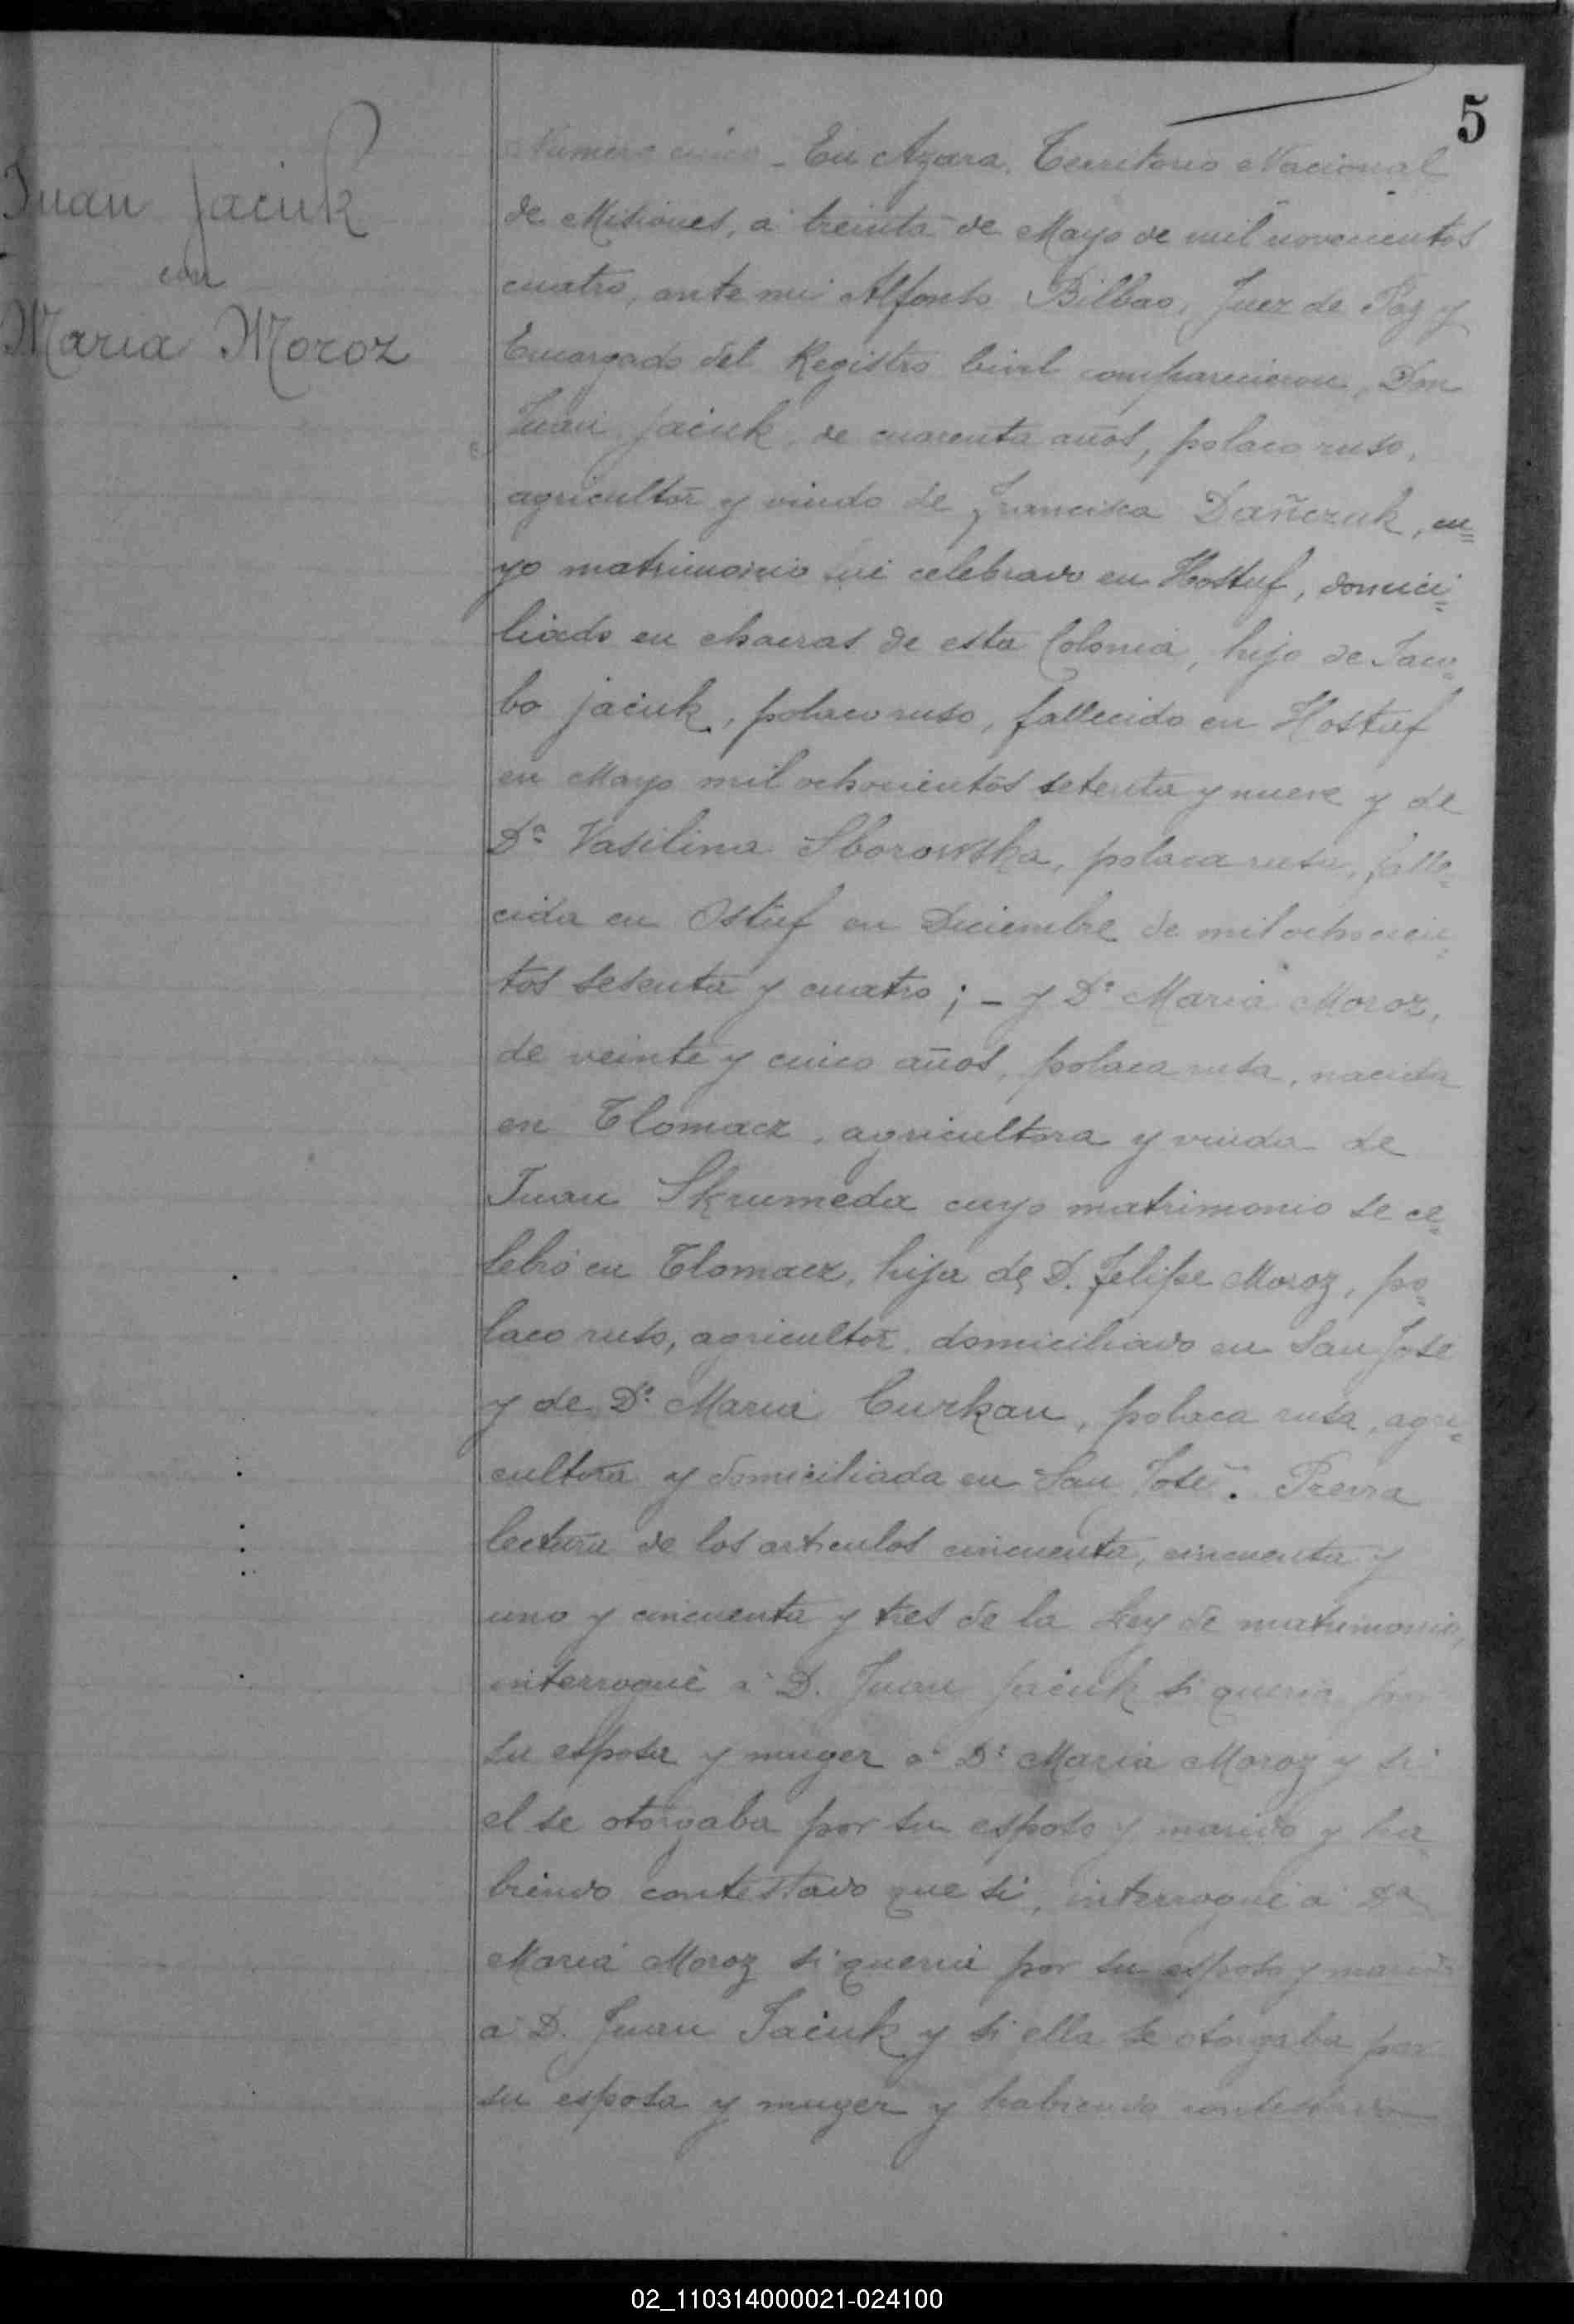 5
Juan Jaciuk
con
Maria Moroz
Numero cinco _ En Azara, Territorio Nacional
de Misiones, a treinta de Mayo de mil novecientos
cuatro, ante mi Alfonso Bilbao, Juez de Paz y
Encargado del Registro Civil comparecieron, Don
Juan Jaciuk, de cuarenta años, polaco ruso,
agricultor y viudo de Francisca Dañczuk, cu=
yo matrimonio fué celebrado en Hostuf, domici=
liado en chacras de esta Colonia, hijo de Jaco=
bo Jaciuk, polaco ruso, fallecido en Hostuf
en Mayo mil ochocientos setenta y nueve y de
Dª Vasilina Sborowska, polaca rusa, falle=
cida en Ostuf en Diciembre de mil ochocien=
tos sesenta y cuatro; _ y Dª Maria Moroz,
de veinte y cinco años, polaca rusa, nacida
en Tlomacz, agricultora y viuda de
Juan Skrumeda cuyo matrimonio se ce=
lebró en Tlomacz, hija de D. Felipe Moroz, po=
laco ruso, agricultor, domiciliado en San José
y de Dª Maria Curkan, polaca rusa, agri=
cultora y domiciliada en San José. Previa
lectura de los articulos cincuenta, cincuenta y
uno y cincuenta y tres de la Ley de matrimonio,
interrogué a D. Juan Jaciuk si queria por
su esposa y muger a Dª Maria Moroz y si
el se otorgaba por su esposo y marido y ha=
biendo contestado que si, interrogué a Dª
Maria Moroz si queria por su esposo y marido
a D. Juan Jaciuk y si ella se otorgaba por
su esposa y muger y habiendo contestado
02_110314000021-024100